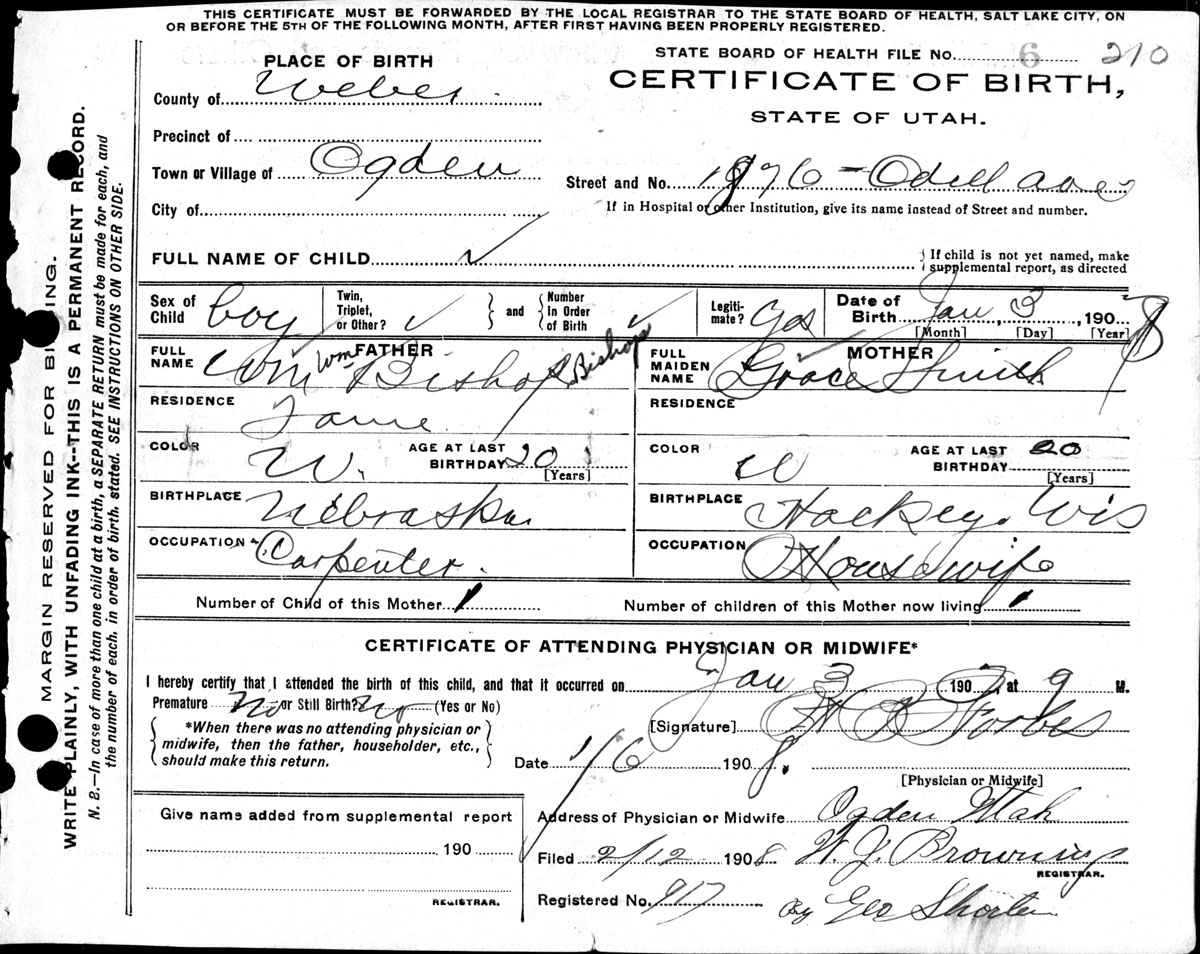 THIS CERTIFICATE MUST BE FORWARDED BY THE LOCAL REGISTRAR TO THE STATE BOARD OF HEALTH, SALT LAKE CITY, ON
OR BEFORE THE 5TH OF THE FOLLOWING MONTH, AFTER FIRST HAVING BEEN PROPERLY REGISTERED.
STATE BOARD OF HEALTH FILE No. 6 210
PLACE OF BIRTH
CERTIFICATE OF BIRTH,
STATE OF UTAH.
County of Weber.
Precinct of
Town or Village of Ogden
Street and No. Odell
City of
If in Hospital or other Institution, give its name instead of Street and number.
FULL NAME OF CHILD
If child is not yet named, make
supplemental report, as directed
Sex of Child boy
Twin, Triplet, or Other? ✓
and
Number In Order of Birth ✓
Legitimate? Yes
Date of Birth Jan 3, 190 8
[Month] [Day] [Year]
FATHER
FULL NAME Wm Bishop Wm Bishop
RESIDENCE Same
COLOR W.
AGE AT LAST BIRTHDAY 20
[Years]
BIRTHPLACE Nebraska
OCCUPATION Carpenter.
MOTHER
FULL MAIDEN NAME Grace Smith
RESIDENCE
COLOR W
AGE AT LAST BIRTHDAY 20
[Years]
BIRTHPLACE Wis
OCCUPATION Housewife
Number of Child of this Mother 1
Number of children of this Mother now living 1
CERTIFICATE OF ATTENDING PHYSICIAN OR MIDWIFE*
I hereby certify that I attended the birth of this child, and that it occurred on Jan 3 190 , at 9 M.
Premature No or Still Birth? No (Yes or No)
*When there was no attending physician or
midwife, then the father, householder, etc.,
should make this return.
[Signature] Forbes
Date 1/6 190 8.
[Physician or Midwife]
Give name added from supplemental report
190
REGISTRAR.
Address of Physician or Midwife Ogden Utah
Filed 2/12 190 8 W. J. Browning
REGISTRAR.
Registered No. 917 By Geo Shorten
MARGIN RESERVED FOR BINDING.
WRITE PLAINLY, WITH UNFADING INK--THIS IS A PERMANENT RECORD.
N. B.—In case of more than one child at a birth, a SEPARATE RETURN must be made for each, and
the number of each, in order of birth, stated. SEE INSTRUCTIONS ON OTHER SIDE.